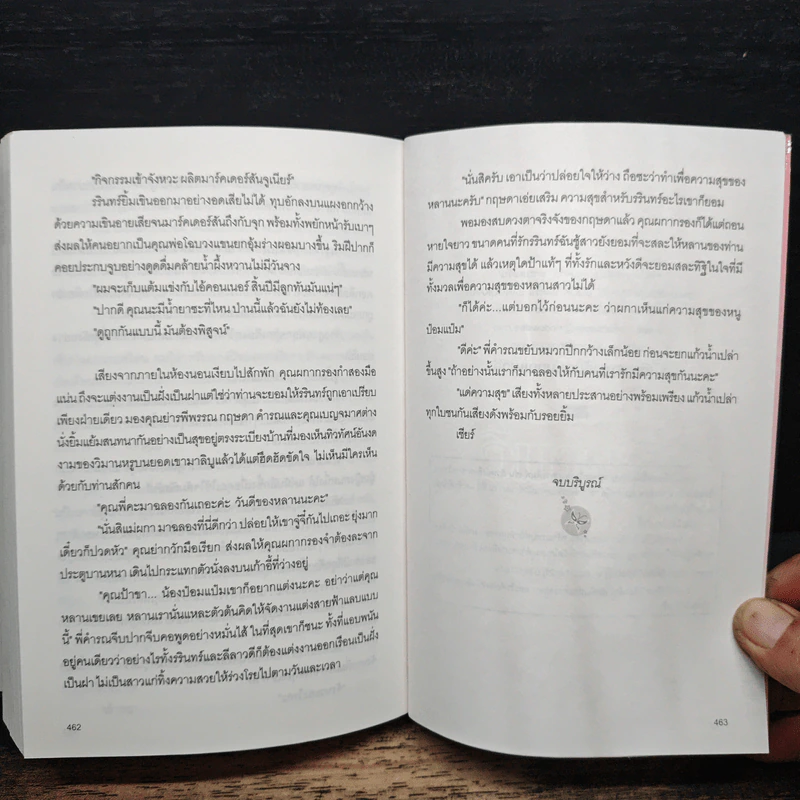 "กิจกรรมเข้าจังหวะ ผลิตมาร์คเดอร์สันจูเนียร์"
รรินทร์ยิ้มเขินออกมาอย่างอดเสียไม่ได้ ทุบอักลงบนแผงอกกว้าง
ด้วยความเขินอายเสียจนมาร์คเดอร์สันถึงกับจุก พร้อมทั้งพยักหน้ารับเบาๆ
ส่งผลให้คนอยากเป็นคุณพ่อโฉบวงแขนยกอุ้มร่างผอมบางขึ้น ริมฝีปากก็
คอยประกบจูบอย่างดูดดื่มคล้ายน้ำผึ้งหวานไม่มีวันจาง
"ผมจะเก็บแต้มแข่งกับไอ้คอนเนอร์ สิ้นปีมีลูกทันมันแน่ๆ"
"ปากดี คุณนะมีน้ำยาซะที่ไหน ป่านนี้แล้วฉันยังไม่ท้องเลย"
"ดูถูกกันแบบนี้ มันต้องพิสูจน์"
เสียงจากภายในห้องนอนเงียบไปสักพัก คุณผกากรองกำสองมือ
แน่น ถึงจะแต่งงานเป็นฝั่งเป็นฝาแต่ใช่ว่าท่านจะยอมให้รรินทร์ถูกเอาเปรียบ
เพียงฝ่ายเดียว มองคุณย่ารพีพรรณ กฤษดา คำรณและคุณเบญจมาศต่าง
นั่งยิ้มแย้มสนทนากันอย่างเป็นสุขอยู่ตรงระเบียงบ้านที่มองเห็นทิวทัศน์อันงด
งามของวิมานหรูบนยอดเขามาลิบูแล้วได้แต่ฮึดฮัดขัดใจ ไม่เห็นมีใครเห็น
ด้วยกับท่านสักคน
"คุณพี่คะมาฉลองกันเถอะค่ะ วันดีของหลานนะคะ"
"นั่นสิแม่ผกา มาฉลองที่นี่ดีกว่า ปล่อยให้เขาจู๋จี๋กันไปเถอะ ยุ่งมาก
เดี๋ยวก็ปวดหัว" คุณย่ากวักมือเรียก ส่งผลให้คุณผกากรองจำต้องละจาก
ประตูบานหนา เดินไปกระแทกตัวนั่งลงบนเก้าอี้ที่ว่างอยู่
"คุณป้าขา... น้องป๋อมแป๋มเขาก็อยากแต่งนะคะ อย่าว่าแต่คุณ
หลานเขยเลย หลานเรานั่นแหละตัวต้นคิดให้จัดงานแต่งสายฟ้าแลบแบบ
นี้" พี่คำรณจีบปากจีบคอพูดอย่างหมั่นไส้ ในที่สุดเขาก็ชนะ ทั้งที่แอบพนัน
อยู่คนเดียวว่าอย่างไรทั้งรรินทร์และลีลาวดีก็ต้องแต่งงานออกเรือนเป็นฝั่ง
เป็นฝา ไม่เป็นสาวแก่ทิ้งความสวยให้ร่วงโรยไปตามวันและเวลา
462
"นั่นสิครับ เอาเป็นว่าปล่อยใจให้ว่าง ถือซะว่าทำเพื่อความสุขของ
หลานนะครับ" กฤษดาเอ่ยเสริม ความสุขสำหรับรรินทร์อะไรเขาก็ยอม
พอมองสบดวงตาจริงจังของกฤษดาแล้ว คุณผกากรองก็ได้แต่ถอน
หายใจยาว ขนาดคนที่รักรรินทร์ฉันชู้สาวยังยอมที่จะสละให้หลานของท่าน
มีความสุขได้ แล้วเหตุใดป้าแท้ๆ ที่ทั้งรักและหวังดีจะยอมสละทิฐิในใจที่มี
ทั้งมวลเพื่อความสุขของหลานสาวไม่ได้
"ก็ได้ค่ะ...แต่บอกไว้ก่อนนะคะ ว่าผกาเห็นแก่ความสุขของหนู
ป๋อมแป๋ม"
"ดีค่ะ" พี่คำรณขยับหมวกปีกกว้างเล็กน้อย ก่อนจะยกแก้วน้ำเปล่า
ขึ้นสูง "ถ้าอย่างนั้นเราก็มาฉลองให้กับคนที่เรารักมีความสุขกันนะคะ"
"แด่ความสุข" เสียงทั้งหลายประสานอย่างพร้อมเพรียง แก้วน้ำเปล่า
ทุกใบชนกันเสียงดังพร้อมกับรอยยิ้ม
เชียร์
จบบริบูรณ์
463